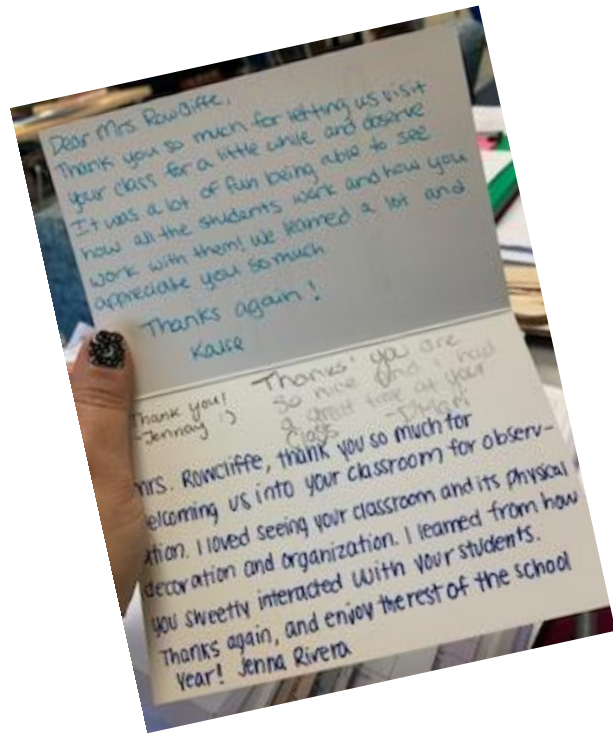 Dear Mrs Rowcliffe,
Thank you so much for letting us visit
your class for a little while and observe
It was a lot of fun being able to see
how all the students work and how you
work with them! We learned a lot and
appreciate you so much
Thanks again!
Thank you!
-Jennay :)
Thanks! you are
so nice and I had
a great time at your
class -
mrs. Rowcliffe, thank you so much for
welcoming us into your classroom for observ-
ation. I loved seeing your classroom and its physical
decoration and organization. I learned from how
you sweetly interacted with your students.
Thanks again, and enjoy the rest of the school
year! Jenna Rivera